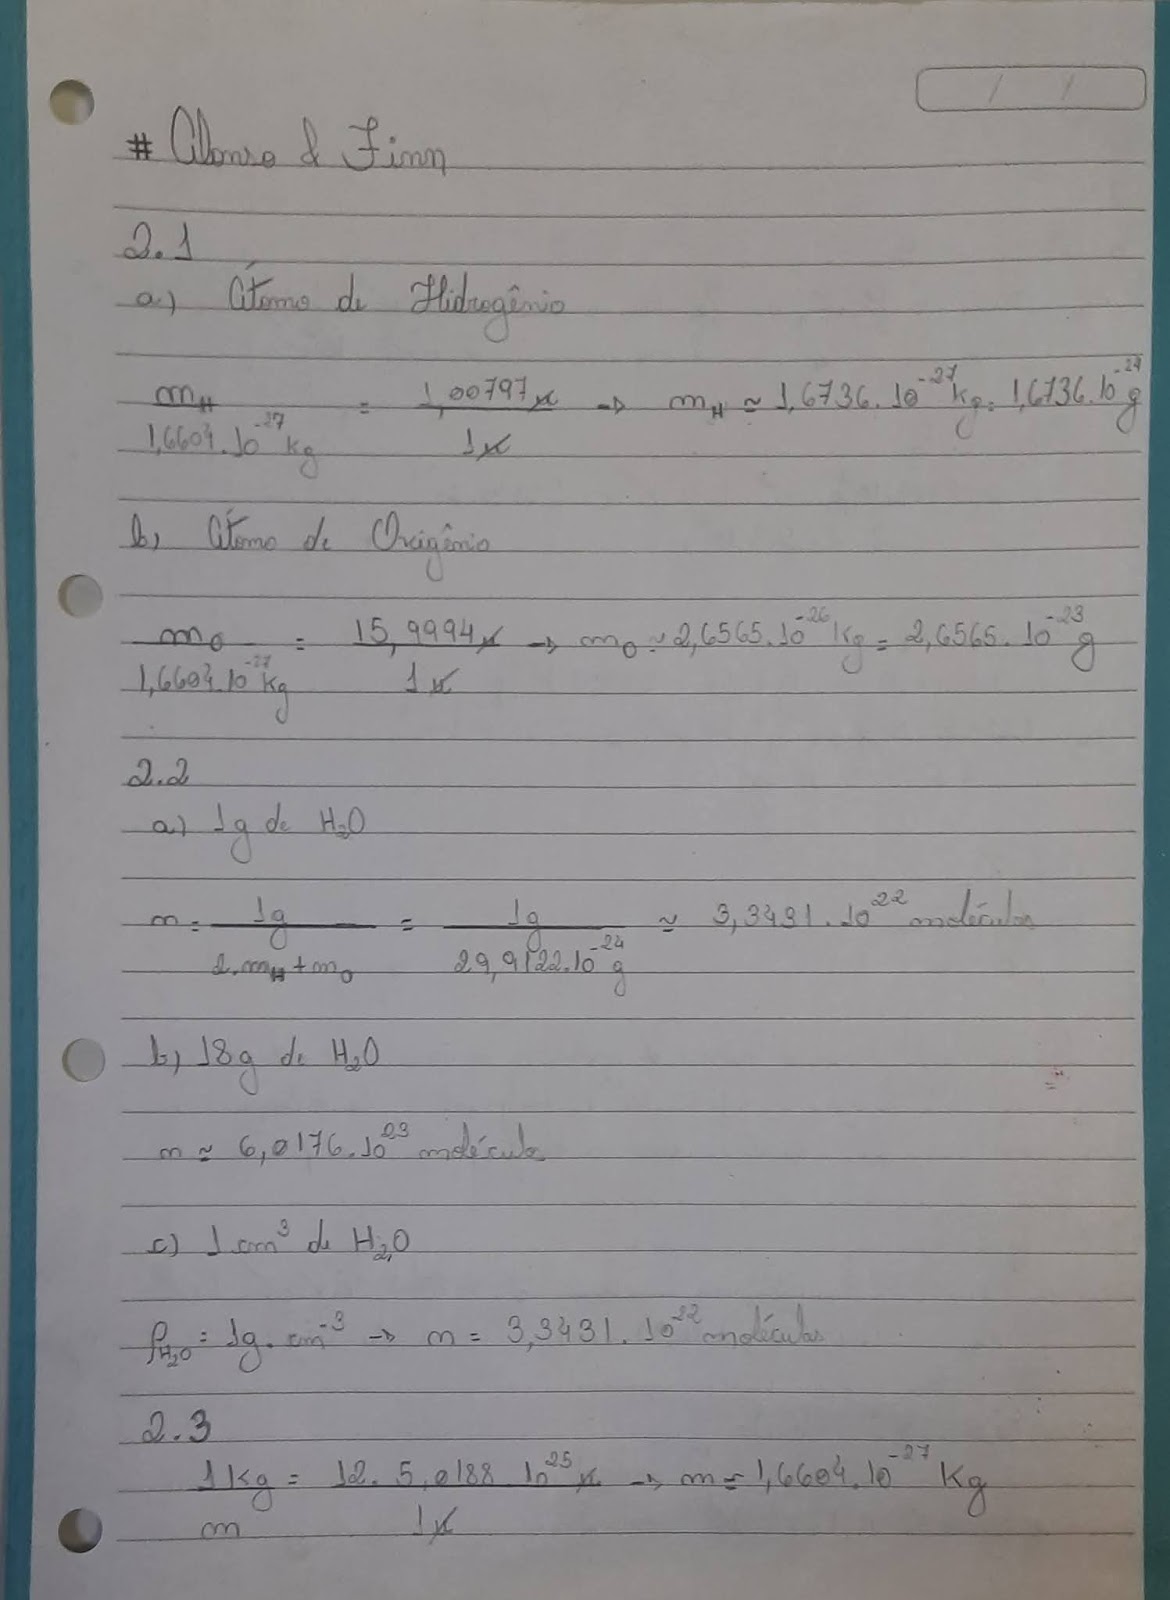 # Alonso & Finn
2.1
a) Átomo de Hidrogênio
m_H / 1,6604.10^-27 kg = 1,00797 u / 1 u → m_H ≃ 1,6736.10^-27 kg = 1,6736.10^-24 g
b) Átomo de Oxigênio
m_O / 1,6604.10^-27 kg = 15,9994 u / 1 u → m_O ≃ 2,6565.10^-26 kg = 2,6565.10^-23 g
2.2
a) 1g de H₂O
n = 1g / 2.m_H + m_O = 1g / 29,9122.10^-24 g ≃ 3,3431.10^22 moléculas
b) 18g de H₂O
n ≃ 6,0176.10^23 moléculas
c) 1 cm³ de H₂O
ρ_H₂O = 1g.cm^-3 → n = 3,3431.10^22 moléculas
2.3
1 kg / m = 12. 5,0188 10^25 u / 1 u → m ≃ 1,6604.10^-27 Kg